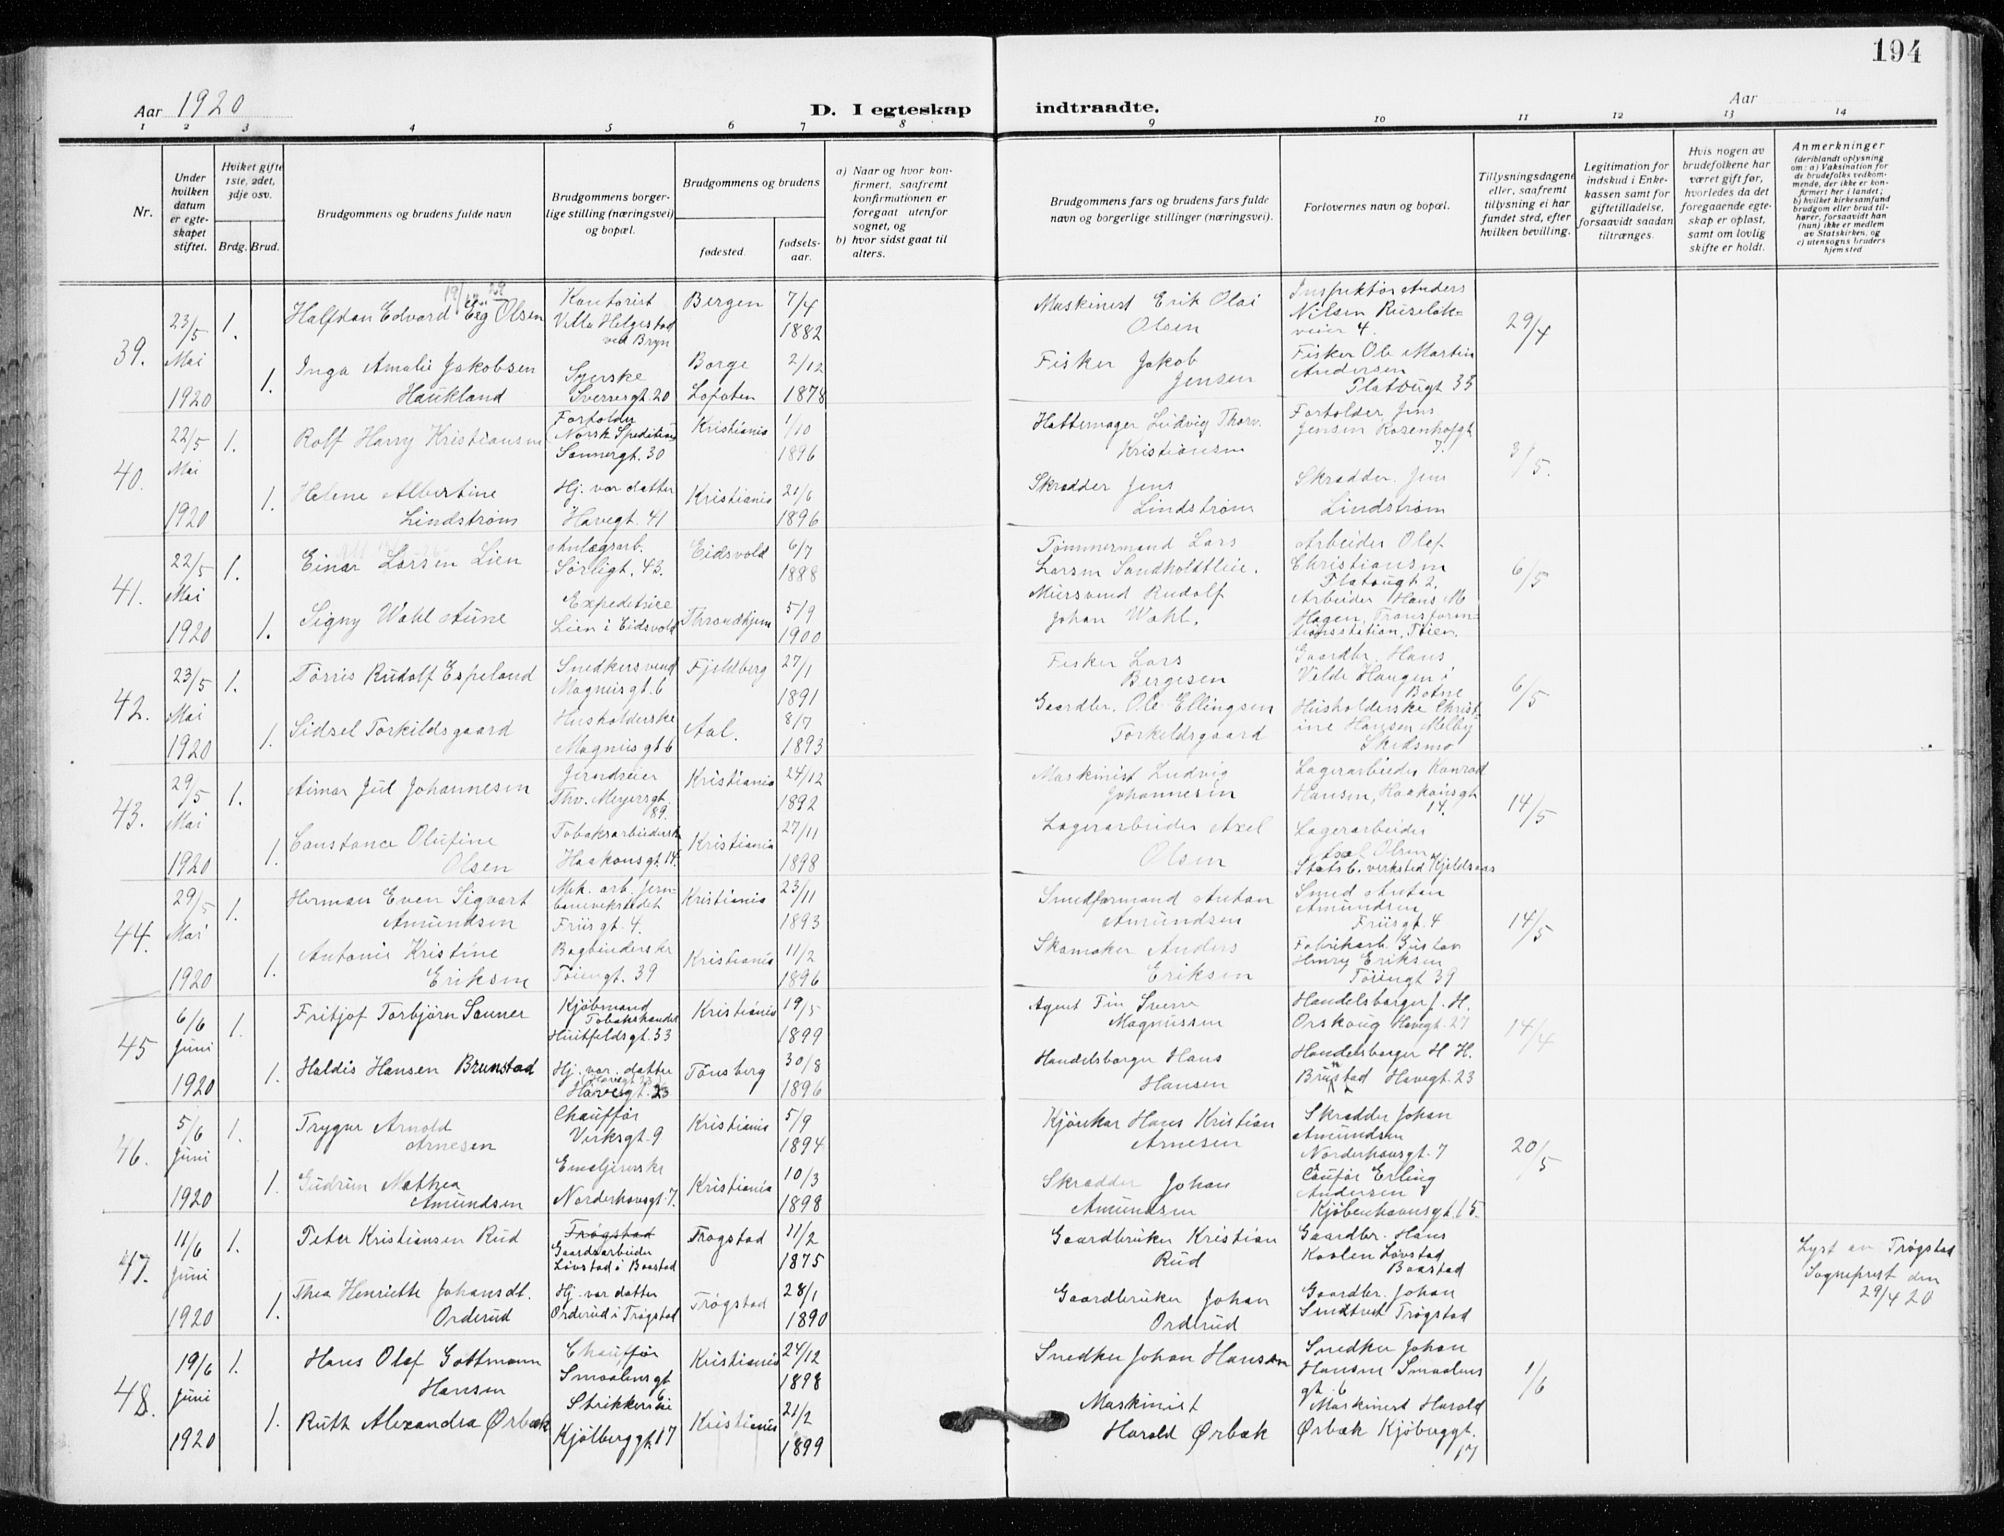 194
Aar 1920
D. I egteskap
indtraadte.
Aar
1 2 3 4 5 6 7 8 9 10 11 12 13 14
Nr.
Under hvilken datum er egteskapet stiftet.
Hvilket gifte 1ste, 2det, 3dje osv.
Brdg. Brud.
Brudgommens og brudens fulde navn
Brudgommens borgerlige stilling (næringsvei) og bopæl.
Brudgommens og brudens
fødested.
fødselsaar.
a) Naar og hvor konfirmert, saafremt konfirmationen er foregaat utenfor sognet, og
b) hvor sidst gaat til alters.
Brudgommens fars og brudens fars fulde navn og borgerlige stillinger (næringsvei).
Forlovernes navn og bopæl.
Tillysningsdagene eller, saafremt tillysning ei har fundet sted, efter hvilken bevilling.
Legitimation for indskud i Enkekassen samt for giftetilladelse, forsaavidt saadan tiltrænges.
Hvis nogen av brudefolkene har været gift før, hvorledes da det foregaaende egteskap er opløst, samt om lovlig skifte er holdt.
Anmerkninger
(deriblandt oplysning om: a) Vaksination for de brudefolks vedkommende, der ikke er konfirmert her i landet;
b) hvilket kirkesamfund brudgom eller brud tilhører, forsaavidt han (hun) ikke er medlem av Statskirken, og
c) utensogns bruders hjemsted
39. 23/5 Mai 1920 1. Halfdan Edvard Eeg Olsen
Kontorist Villa Helgestad ved Bryn
Bergen 7/4 1882
Maskinist Erik Olai Olsen
Inspektør Anders Nilsen Ruseløkveien 4.
29/4
1. Inga Amalie Jakobsen Haukland
Syerske Sverresgt. 20
Borge Lofoten 2/12 1878
Fisker Jakob Jensen
Fisker Ole Martin Andersen Platougt 33
40. 22/5 Mai 1920 1. Rolf Harry Kristiansen
Fortolder Norsk Spedition Sannergt. 30
Kristiania 1/10 1896
Hattemager Ludvig Thorv. Kristiansen
Fortolder Jens Jensen Rosenhofgt 7.
3/5.
1. Helene Albertine Lindstrøm
Hj. var. datter Havegt. 41
Kristiania 21/6 1896
Skrædder Jens Lindstrøm
Skrædder Jens Lindstrøm
41. 22/5 Mai 1920 1. Einar Larsen Lien
Anlægsarb. Sørligt. 43.
Eidsvold 6/7 1888
Tømmermand Lars Larsen Sandholdtleie.
Arbeider Olaf Christiansen Platougt 2.
6/5
1. Signy Wahl Aune
Expeditrice Lien i Eidsvold
Throndhjem 5/9 1900
Mursvend Rudolf Johan Wahl.
Arbeider Hans M Hagen, Transformationsstation, Tøien.
42. 23/5 Mai 1920 1. Tørris Rudolf Espeland
Snedkersvend Magnusgt. 6
Fjeldberg 27/1 1891
Fisker Lars Bergesen
Gaardbr. Hans Velde Haugen i Botne
6/5
1. Sidsel Torkildsgaard
Husholderske Magnusgt 6
Aal. 8/7 1893
Gaardbr. Ole Ellingsen Torkildsgaard
Husholderske Christine Hansen Melby Skedsmo
43. 29/5 Mai 1920 1. Aimar Jul Johannesen
Jerndreier Thv. Meyersgt. 89.
Kristiania 24/12 1892
Maskinist Ludvig Johannesen
Lagerarbeider Konrad Hansen, Haakonsgt 14.
14/5
1. Constance Olufine Olsen
Tobaksarbeiderske Haakonsgt 14.
Kristiania 27/11 1898
Lagerarbeider Axel Olsen
Lagerarbeider Axel Olsen
44. 29/5 Mai 1920 1. Herman Even Sigvart Amundsen
Mek. arb. Jernbaneverkstedet Friisgt. 4.
Kristiania 23/11 1893
Smedformand Anton Amundsen
Statsb. verksted Kjeldsaas
Smed Anton Amundsen Friisgt. 4
14/5
1. Antonie Kristine Eriksen
Bogbinderske Tøiengt. 39
Kristiania 11/2 1896
Skomaker Anders Eriksen
Fabrikarb. Gustav Henry Eriksen Tøiengt 39
45 6/6 Juni 1920 1. Fritjof Torbjørn Sanner
Kjøbmand Tobakshandel Huitfeldsgt. 33
Kristiania 19/5 1899
Agent Finn Sverre Magnussen
Handelsborger J. H. Orskoug Havegt. 27
14/4
1. Haldis Hansen Brunstad
Hj. var. datter Havegt. 23
Tønsberg 30/8 1896
Handelsborger Hans Hansen
Handelsborger H. H. Brunstad Havegt. 23
46. 5/6 Juni 1920 1. Trygve Arnold Arnesen
Chauffør Verksgt. 9
Kristiania 5/9 1894
Kjørekar Hans Kristian Arnesen
Skrædder Johan Amundsen Norderhovsgt. 7
20/5
1. Gudrun Mathea Amundsen
Emaljererske Norderhovsgt. 7.
Kristiania 10/3 1898
Skrædder Johan Amundsen
Caufør Erling Andersen Kjøbenhavnsgt. 15.
47. 11/6 Juni 1920 1. Peter Kristiansen Rud
Trøgstad Gaardsarbeider Løvstad i Baastad
Trøgstad 11/2 1875
Gaardbruker Kristian Rud
Gaardbr. Hans Løvstad Baastad
Lyst av Trøgstad Sogneprest den 29/4 20
1. Thea Henriette Johansdt. Orderud
Hj. var datter Orderud i Trøgstad
Trøgstad 28/1 1890
Gaardbruker Johan Orderud
Gaardbr. Johan Smedtvet Trøgstad
48. 19/6 Juni 1920 1. Hans Olaf Gottmann Hansen
Chauffør Smaalensgt 6
Kristiania 24/12 1898
Snedker Johan Hansen
Snedker Johan Hansen Smaalensgt. 6
1/6
1. Ruth Alexandra Ørbæk
Strikkerske Kjølberggt. 17
Kristiania 21/2 1899
Maskinist Harald Ørbæk
Maskinist Harald Ørbæk Kjølberggt. 17